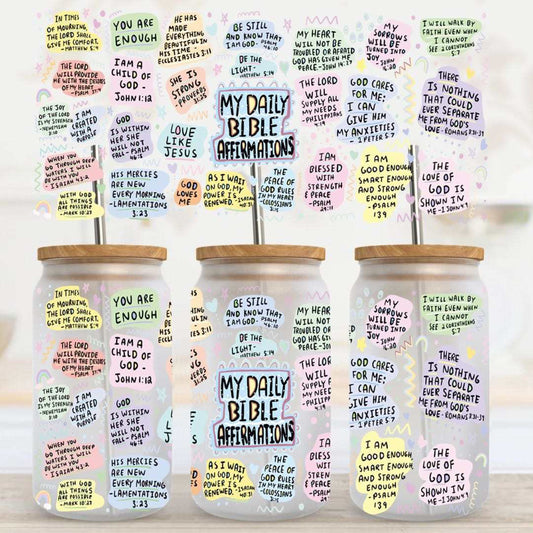 IN TIMES
OF MOURNING,
THE LORD SHALL
GIVE ME COMFORT.
- MATTHEW 5:4
YOU ARE
ENOUGH
HE HAS
MADE
EVERYTHING
BEAUTIFUL IN
HIS TIME -
ECCLESIASTES 3:11
BE STILL
AND KNOW THAT
I AM GOD - PSALM
46:10
MY HEART
WILL NOT BE
TROUBLED OR AFRAID
GOD HAS GIVEN ME
PEACE - JOHN 14:27
MY
SORROWS
WILL BE
TURNED INTO
JOY - JOHN
I WILL WALK BY
FAITH EVEN WHEN
I CANNOT
SEE 2 CORINTHIANS
5:7
THE LORD
WILL PROVIDE
ME WITH THE DESIRES
OF MY HEART
- PSALM
I AM A
CHILD OF
GOD -
JOHN 1:12
SHE IS
STRONG
- PROVERBS
31:25
BE THE
LIGHT -
MATTHEW 5:14
MY DAILY
BIBLE
AFFIRMATIONS
THE LORD
WILL SUPPLY
ALL MY
NEEDS -
PHILIPPIANS
4:19
GOD CARES
FOR ME:
I CAN
GIVE HIM
MY ANXIETIES
- 1 PETER 5:7
THERE
IS NOTHING
THAT COULD
EVER SEPARATE
ME FROM GOD'S
LOVE - ROMANS
THE JOY
OF THE LORD
IS MY STRENGTH
- NEHEMIAH
I AM
CREATED
WITH A
PURPOSE
GOD
IS WITHIN
HER SHE
WILL NOT
FALL - PSALM
46:5
LOVE
LIKE
JESUS
WHEN YOU
GO THROUGH DEEP
WATERS I WILL
BE WITH YOU
- ISAIAH 43:2
HIS MERCIES
ARE NEW
EVERY MORNING
- LAMENTATIONS
3:23
GOD
LOVES
ME
AS I WAIT
ON GOD, MY
POWER IS
RENEWED. - ISAIAH
40:31
THE
PEACE OF
GOD RULES
IN MY HEART
- COLOSSIANS
3:15
I AM
BLESSED
WITH
STRENGTH
& PEACE
- PSALM
29:11
I AM
GOOD ENOUGH,
SMART ENOUGH
AND STRONG
ENOUGH
- PSALM
139
THE
LOVE OF
GOD IS
SHOWN IN
ME - 1 JOHN 4:9
WITH GOD
ALL THINGS
ARE POSSIBLE
- MARK 10:27
IN TIMES
OF MOURNING,
THE LORD SHALL
GIVE ME COMFORT.
- MATTHEW 5:4
YOU ARE
ENOUGH
THE LORD
WILL PROVIDE
ME WITH THE DESIRES
OF MY HEART
I AM A
CHILD OF
GOD
- JOHN 1:12
THE JOY
OF THE LORD
IS MY STRENGTH
- NEHEMIAH
I AM
CREATED
WITH A
PURPOSE
GOD
IS WITHIN
HER SHE
WILL NOT
FALL - PSALM
WHEN YOU
GO THROUGH DEEP
WATERS I WILL
BE WITH YOU
- ISAIAH 43:2
HIS MERCIES
ARE NEW
EVERY MORNING
- LAMENTATIONS
3:23
WITH GOD
ALL THINGS
ARE POSSIBLE
- MARK 10:27
BE STILL
AND KNOW THAT
I AM GOD - PSALM
46:10
MY HEART
WILL NOT
TROUBLED OR
GOD HAS
PEACE
BE THE
LIGHT -
MATTHEW 5:14
MY DAILY
BIBLE
AFFIRMATIONS
THE LORD
WILL SUPPLY
NEEDS
LIKE
AS I WAIT
ON GOD, MY
POWER IS
RENEWED. - ISAIAH
40:31
THE
PEACE OF
GOD RULES
IN MY HEART
- COLOSSIANS
3:15
BLESSED
WITH
STRENGTH
& PEACE
- PSALM
29:11
MY
SORROWS
WILL BE
TURNED INTO
JOY - JOHN
I WILL WALK BY
FAITH EVEN WHEN
I CANNOT
SEE 2 CORINTHIANS
5:7
GOD CARES
FOR ME:
I CAN
GIVE HIM
MY
ANXIETIES
- 1 PETER 5:7
THERE
IS NOTHING
THAT COULD
EVER SEPARATE
ME FROM GOD'S
LOVE - ROMANS
I AM
GOOD ENOUGH,
SMART ENOUGH
AND STRONG
ENOUGH
- PSALM
139
THE
LOVE OF
GOD IS
SHOWN IN
ME - 1 JOHN 4:9